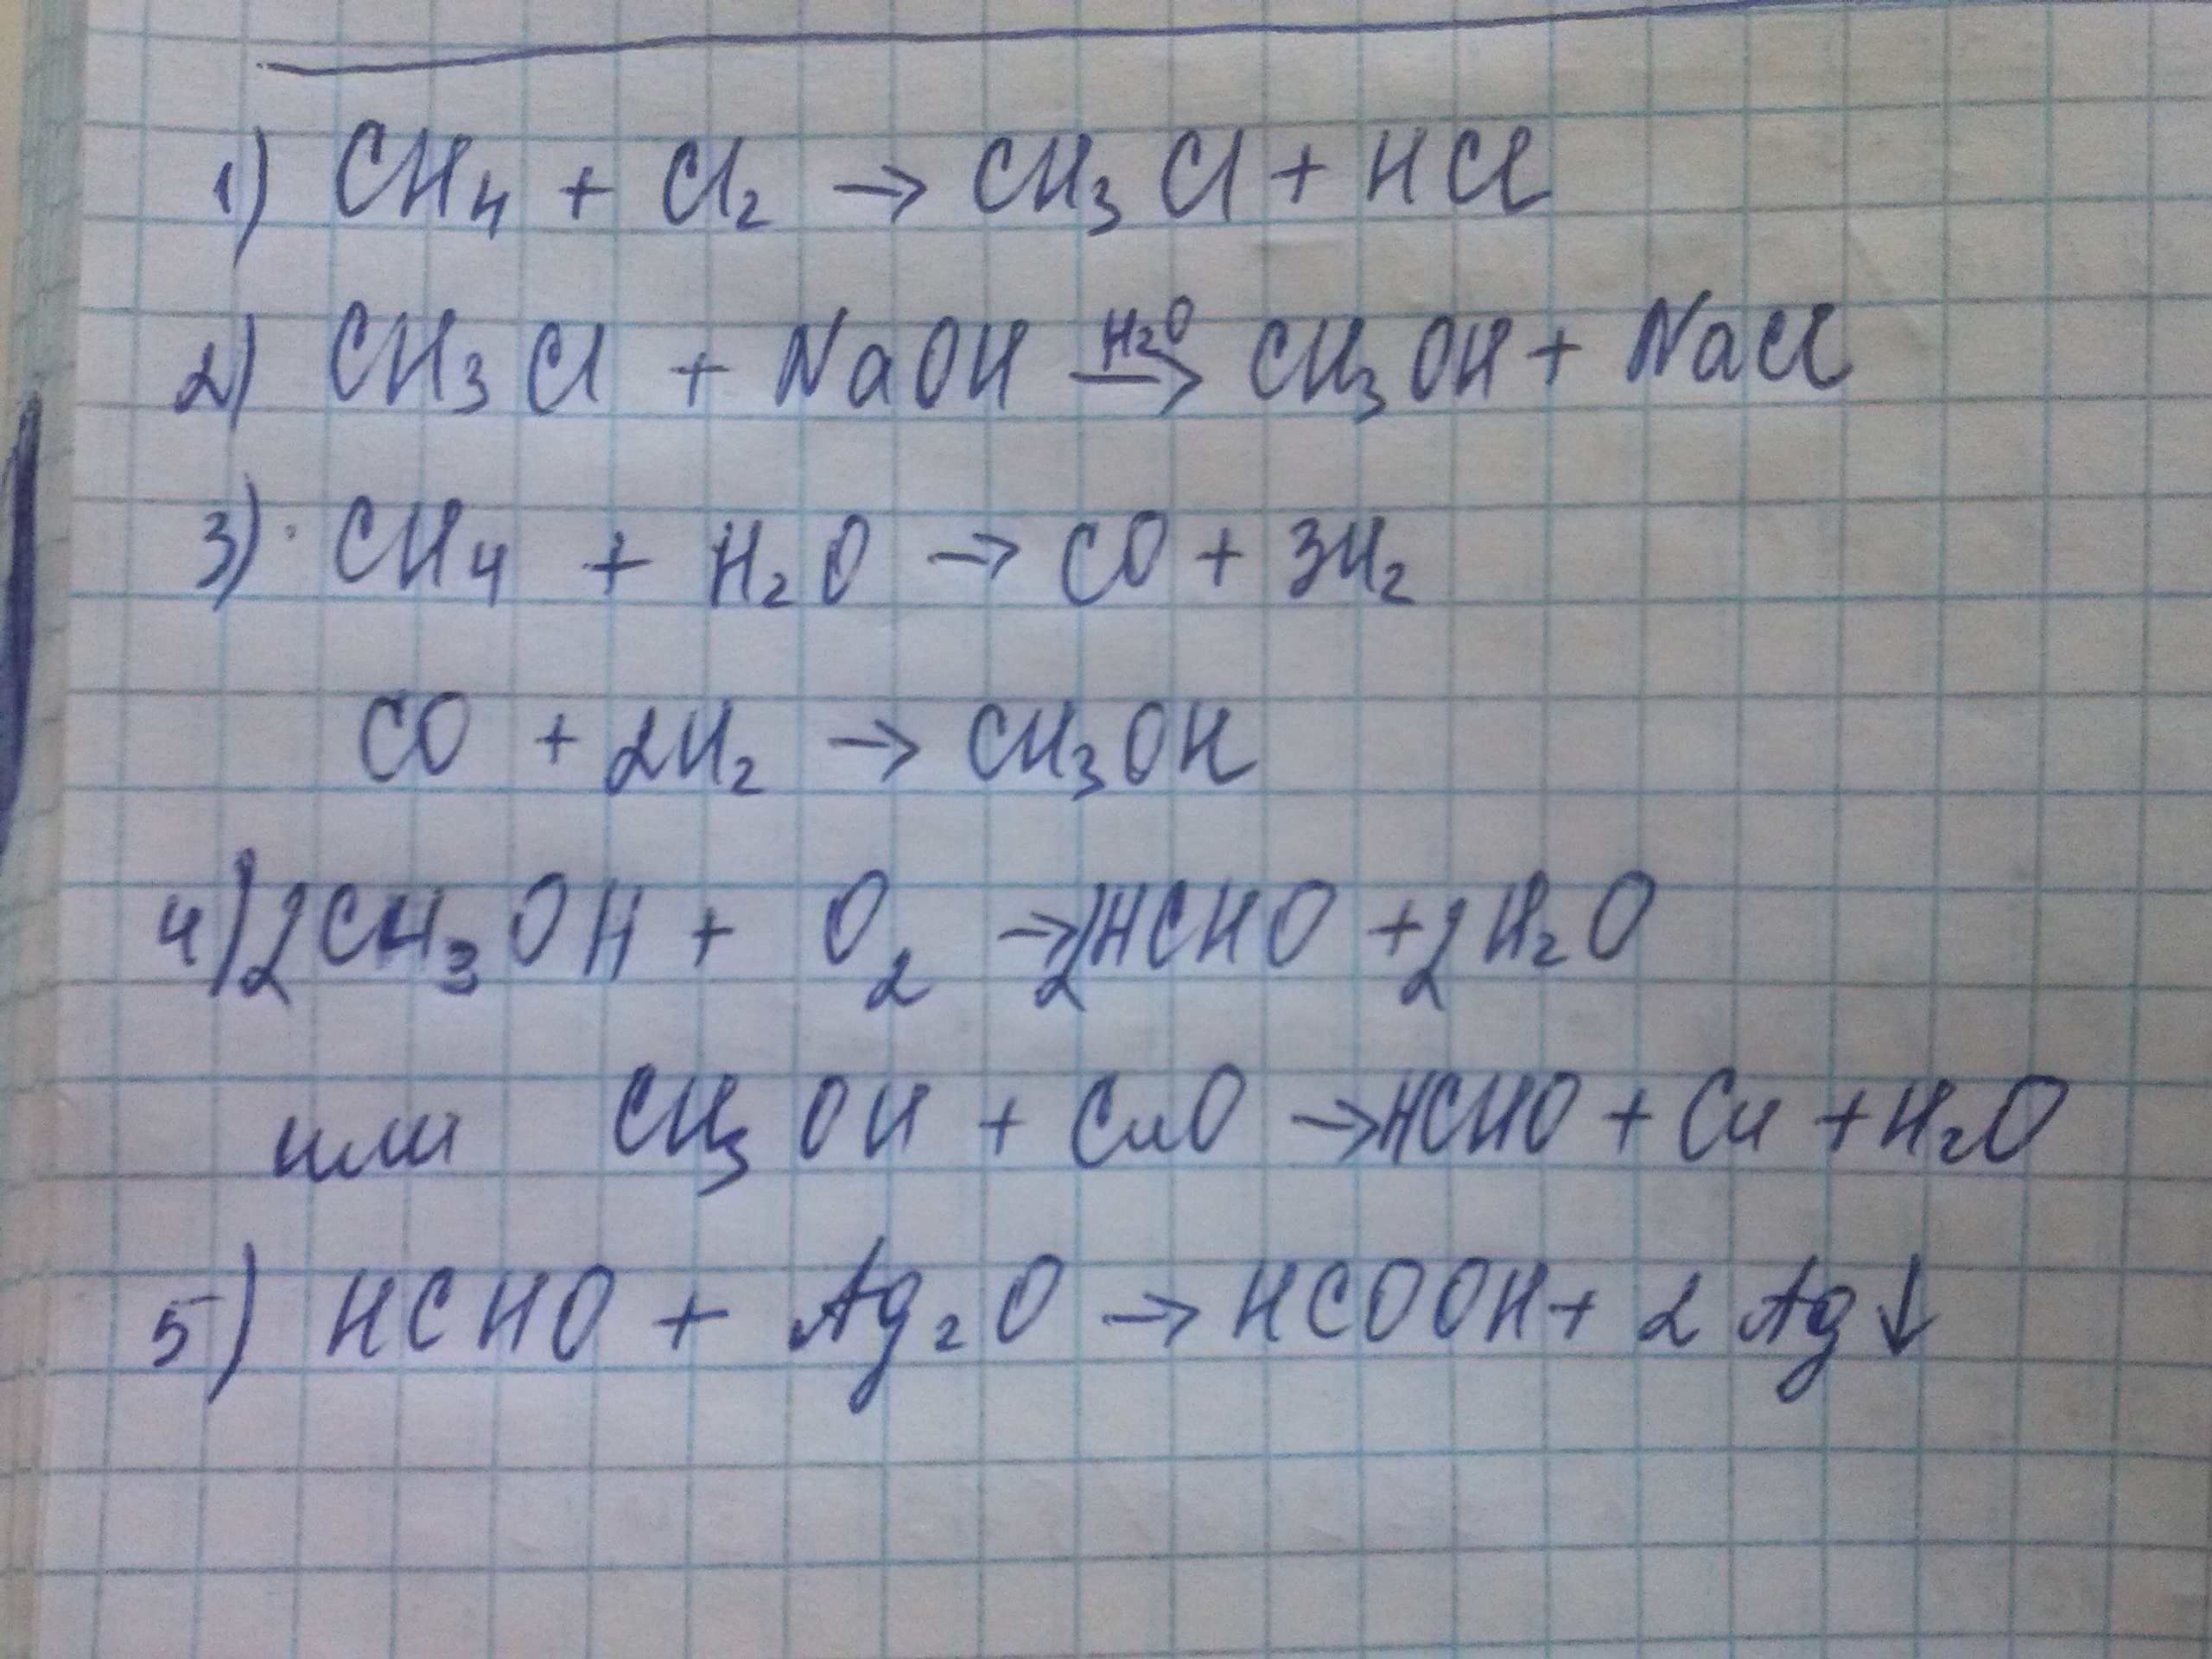 1) CH₄ + Cl₂ → CH₃Cl + HCl
2) CH₃Cl + NaOH →(H₂O) CH₃OH + NaCl
3) CH₄ + H₂O → CO + 3H₂
CO + 2H₂ → CH₃OH
4) 2CH₃OH + O₂ → 2HCHO + 2H₂O
или CH₃OH + CuO → HCHO + Cu + H₂O
5) HCHO + Ag₂O → HCOOH + 2Ag↓